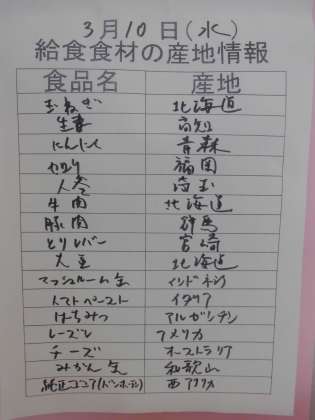 3月10日(水)
給食食材の産地情報
食品名 産地
玉ねぎ 北海道
生姜 高知
にんにく 青森
セロリ 福岡
人参 埼玉
牛肉 北海道
豚肉 群馬
とりレバー 宮崎
大豆 北海道
マッシュルーム缶 インドネシア
トマトペースト イタリア
はちみつ アルゼンチン
レーズン アメリカ
チーズ オーストラリア
みかん缶 和歌山
純正ココア(バンホーテン) 西アフリカ